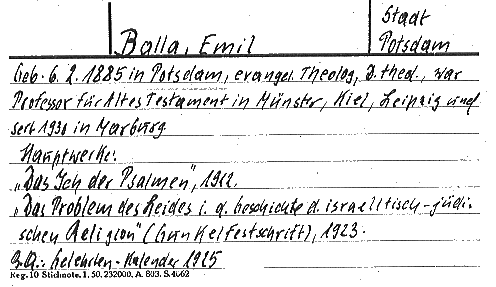 Stadt
Balla, Emil Potsdam
Geb. 6. 2. 1885 in Potsdam, evangel. Theolog, D. theol., war
Professor für Altes Testament in Münster, Kiel, Leipzig und
seit 1930 in Marburg
Hauptwerke:
„Das Ich der Psalmen", 1912.
„Das Problem des Leides i. d. Geschichte d. israelitisch-jüdi-
schen Religion" (Gunkelfestschrift), 1923.
Gelehrten-Kalender 1925
Reg. 10 Stichnote. 1. 50. 232000. A. 803. S. 4062